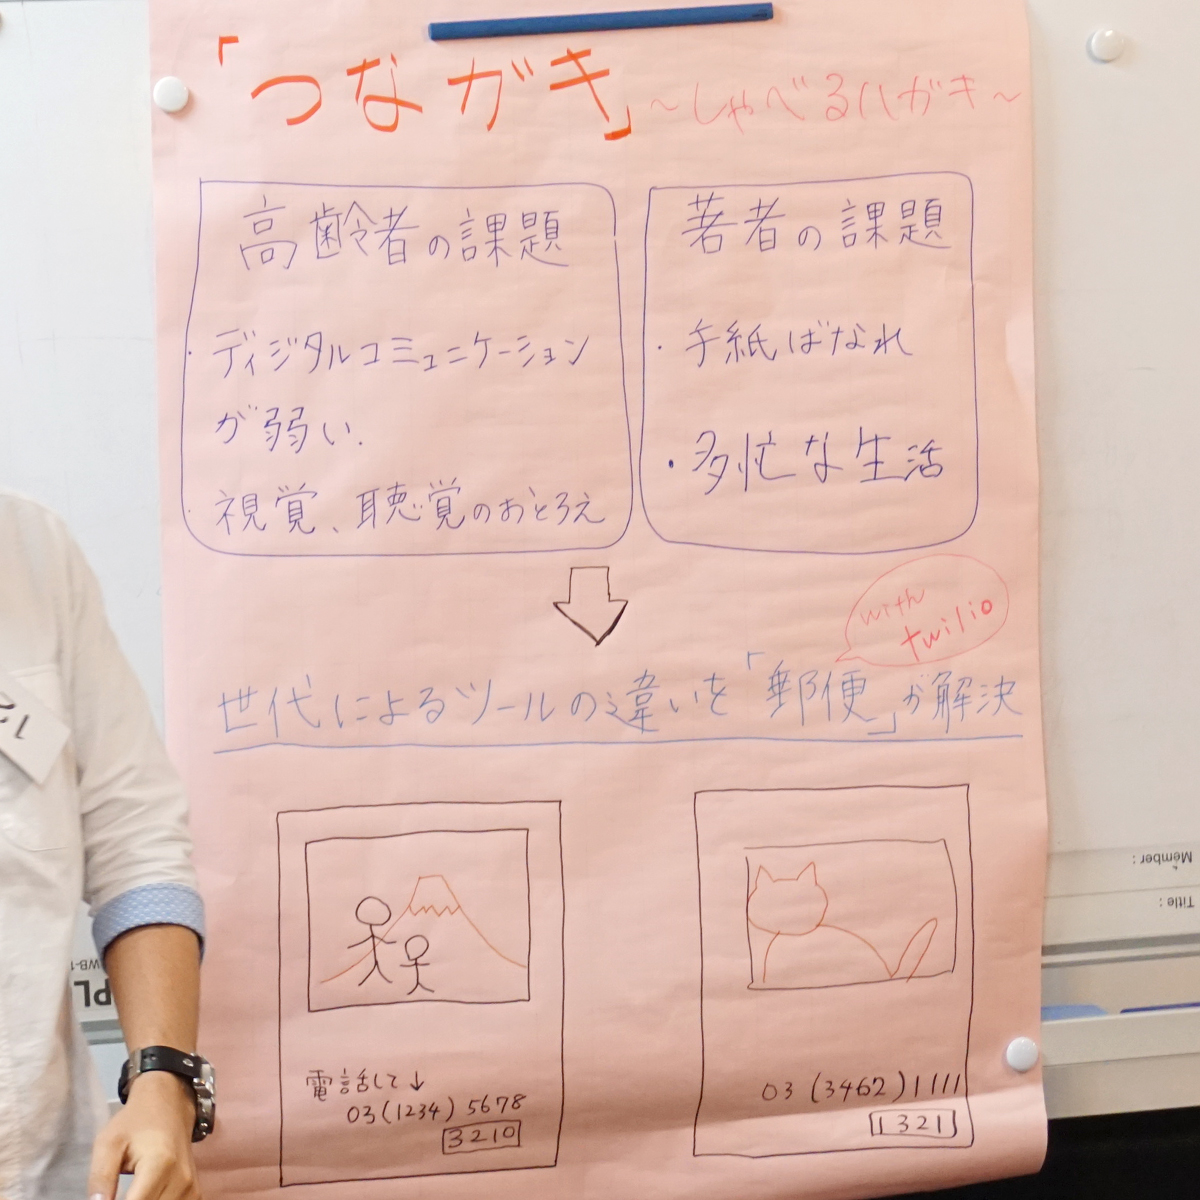 「つながき」～しゃべるハガキ～
高齢者の課題
・ディジタルコミュニケーション
が弱い.
・視覚、聴覚のおとろえ
著者の課題
・手紙ばなれ
・多忙な生活
with
twilio
世代によるツールの違いを「郵便」が解決
電話して↓
03(1234)5678
3210
03(3462)1111
1321
Member:
Title:
WB-1
PL
12